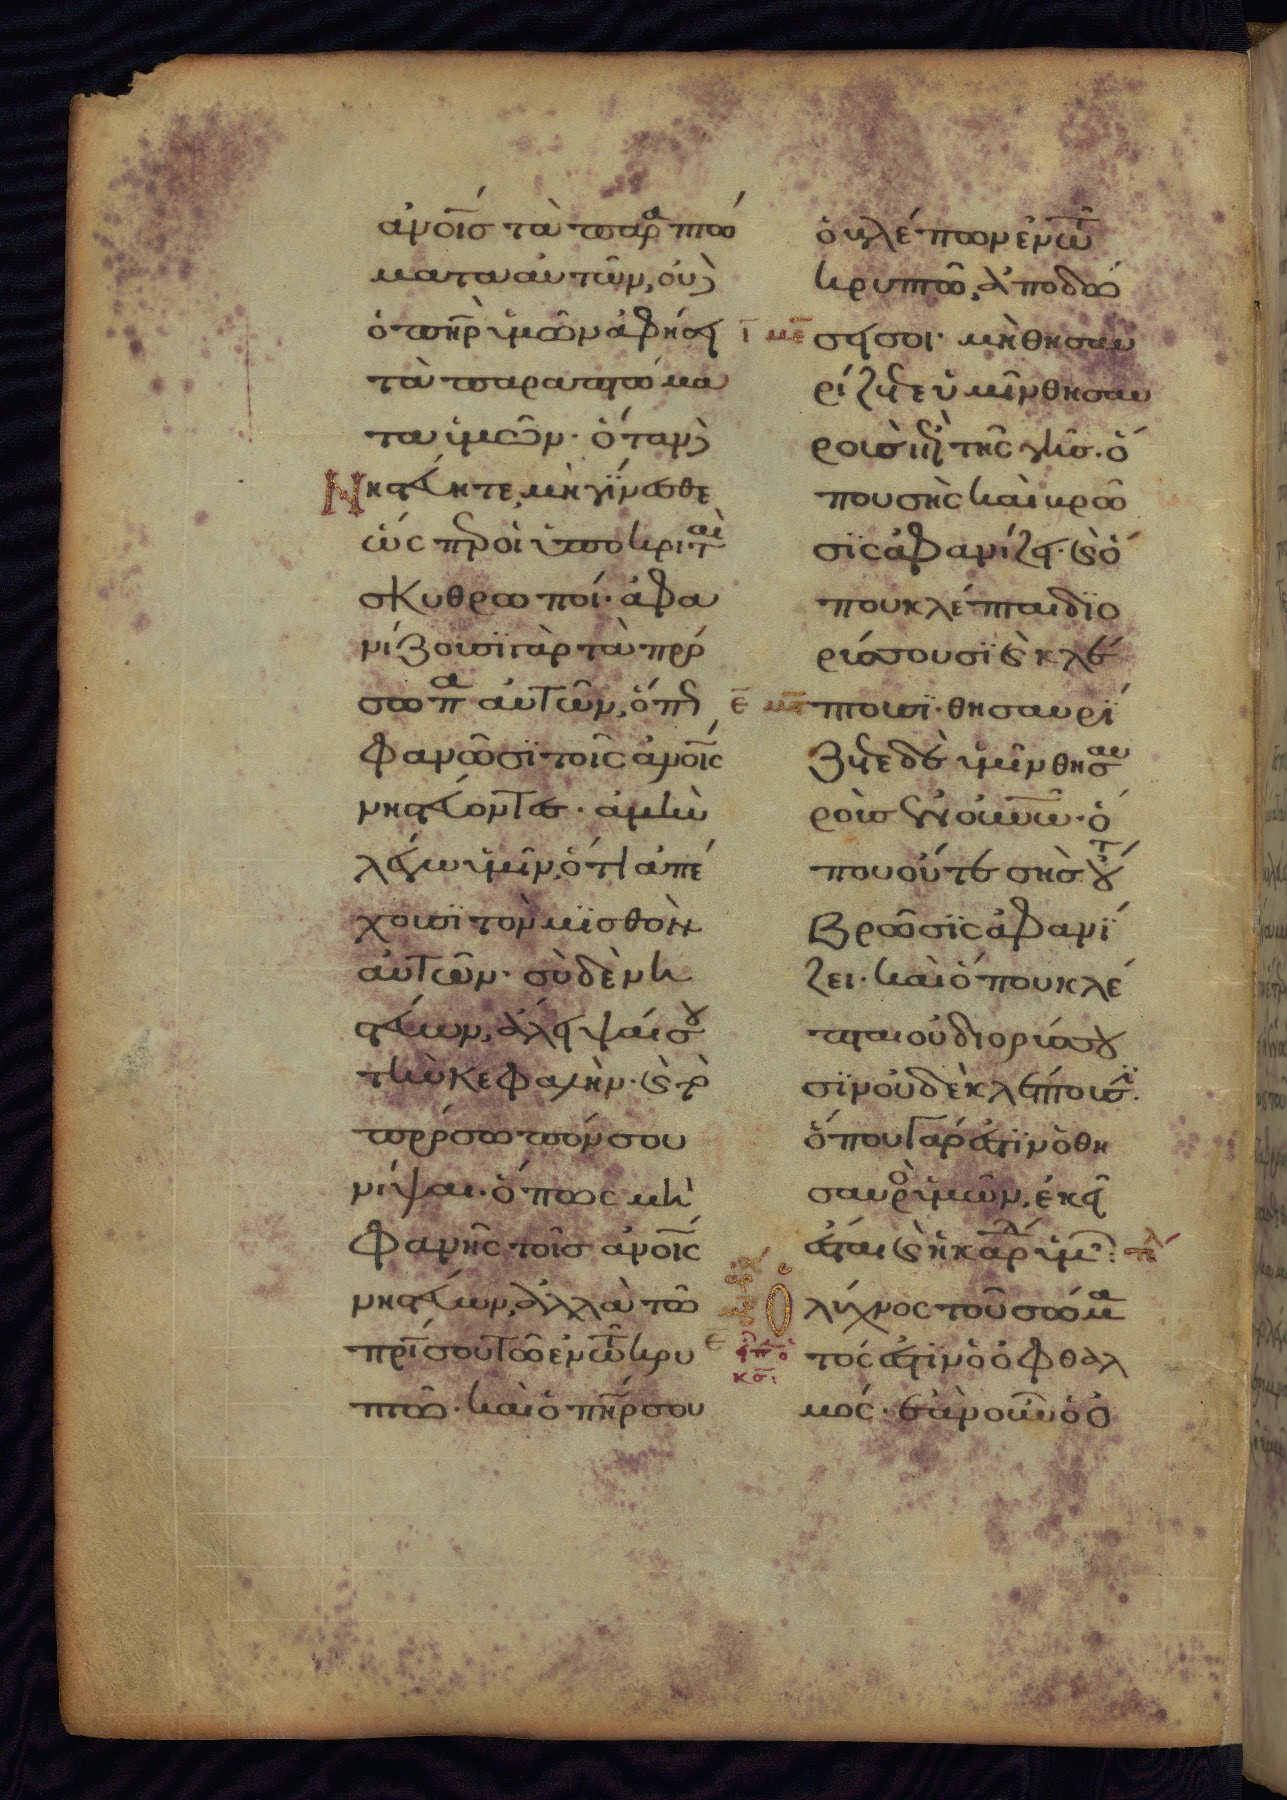 ἀνοῖς τὰ παραπτώ
ματα αὐτῶν, οὐδὲ
ὁ πηρ ὑμῶν ἀφήσει
τὰ παραπτώμα
τα ὑμῶν· ὅταν δὲ
Νηστεύητε, μὴ γίνεσθε
ὡς περ οἱ ὑποκριταὶ
σκυθρωποί· ἀφα
νίζουσι γὰρ τὰ πρό
σωπα αὐτῶν, ὅπως
φανῶσι τοῖς ἀνοῖς
νηστεύοντες· ἀμὴν
λέγω ὑμῖν, ὅτι ἀπέ
χουσι τὸν μισθὸν
αὐτῶν· σὺ δὲ νη
στεύων, ἄλειψαί σου
τὴν κεφαλὴν· καὶ τὸ
πρόσωπόν σου
νίψαι· ὅπως μὴ
φανῇς τοῖς ἀνοῖς
νηστεύων, ἀλλὰ τῶ
πρί σου τῶ ἐν τῶ κρυ
πτῶ· καὶ ὁ πηρ σου
ὁ βλέπων ἐν τῶ
κρυπτῶ, ἀποδώ
σει σοι· μὴ θησαυ
ρίζετε ὑμῖν θησαυ
ροὺς ἐπὶ τῆς γῆς· ὅ
που σὴς καὶ βρῶ
σις ἀφανίζει· καὶ ὅ
που κλέπται διο
ρύσσουσι καὶ κλέ
πτουσι· θησαυρί
ζετε δὲ ὑμῖν θησαυ
ροὺς ἐν οὐνῶ· ὅ
που οὔτε σὴς οὔτε
βρῶσις ἀφανί
ζει· καὶ ὅπου κλέ
πται οὐ διορύσσου
σιν οὐδὲ κλέπτουσι·
ὅπου γάρ ἐστιν ὁ θη
σαυρὸς ὑμῶν, ἐκεῖ
ἔσται καὶ ἡ καρδία ὑμῶν: τέλ
Ὁ λύχνος τοῦ σώμα
τός ἐστιν ὁ ὀφθαλ
μός· ἐὰν οὖν ὁ ὀ